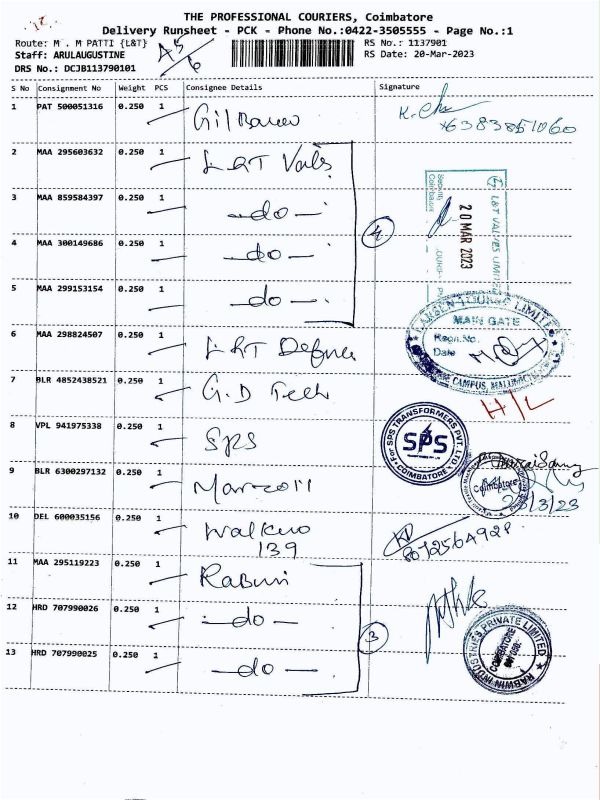 THE PROFESSIONAL COURIERS, Coimbatore
Delivery Runsheet - PCK - Phone No.:0422-3505555 - Page No.:1
Route: M . M PATTI {L&T}
RS No.: 1137901
Staff: ARULAUGUSTINE
RS Date: 20-Mar-2023
DRS No.: DCJB113790101
A5/6
S No Consignment No Weight PCS Consignee Details Signature
1 PAT 500051316 0.250 1
K.
6383851060
2 MAA 295603632 0.250 1 L&T Vals
3 MAA 859584397 0.250 1 -do-
4 MAA 300149686 0.250 1 -do-
5 MAA 299153154 0.250 1 -do-
4
L&T VALVES LIMITED
20 MAR 2023
Coimbatore
LARSEN & TOUBRO LIMITED
MAIN GATE
Regn.No.
Date
CAMPUS, MALUMICHAM
6 MAA 298824507 0.250 1 L&T Defence
7 BLR 4852438521 0.250 1 G.D Tech
H/L
8 VPL 941975338 0.250 1 SPS
For SPS TRANSFORMERS PVT. LTD.
SPS
COIMBATORE
9 BLR 6300297132 0.250 1
Coimbatore
/3/23
10 DEL 600035156 0.250 1
139
11 MAA 295119223 0.250 1
12 HRD 707990026 0.250 1 -do-
13 HRD 707990025 0.250 1 -do-
3
RABWIN INDUSTRIES PRIVATE LIMITED
COIMBATORE